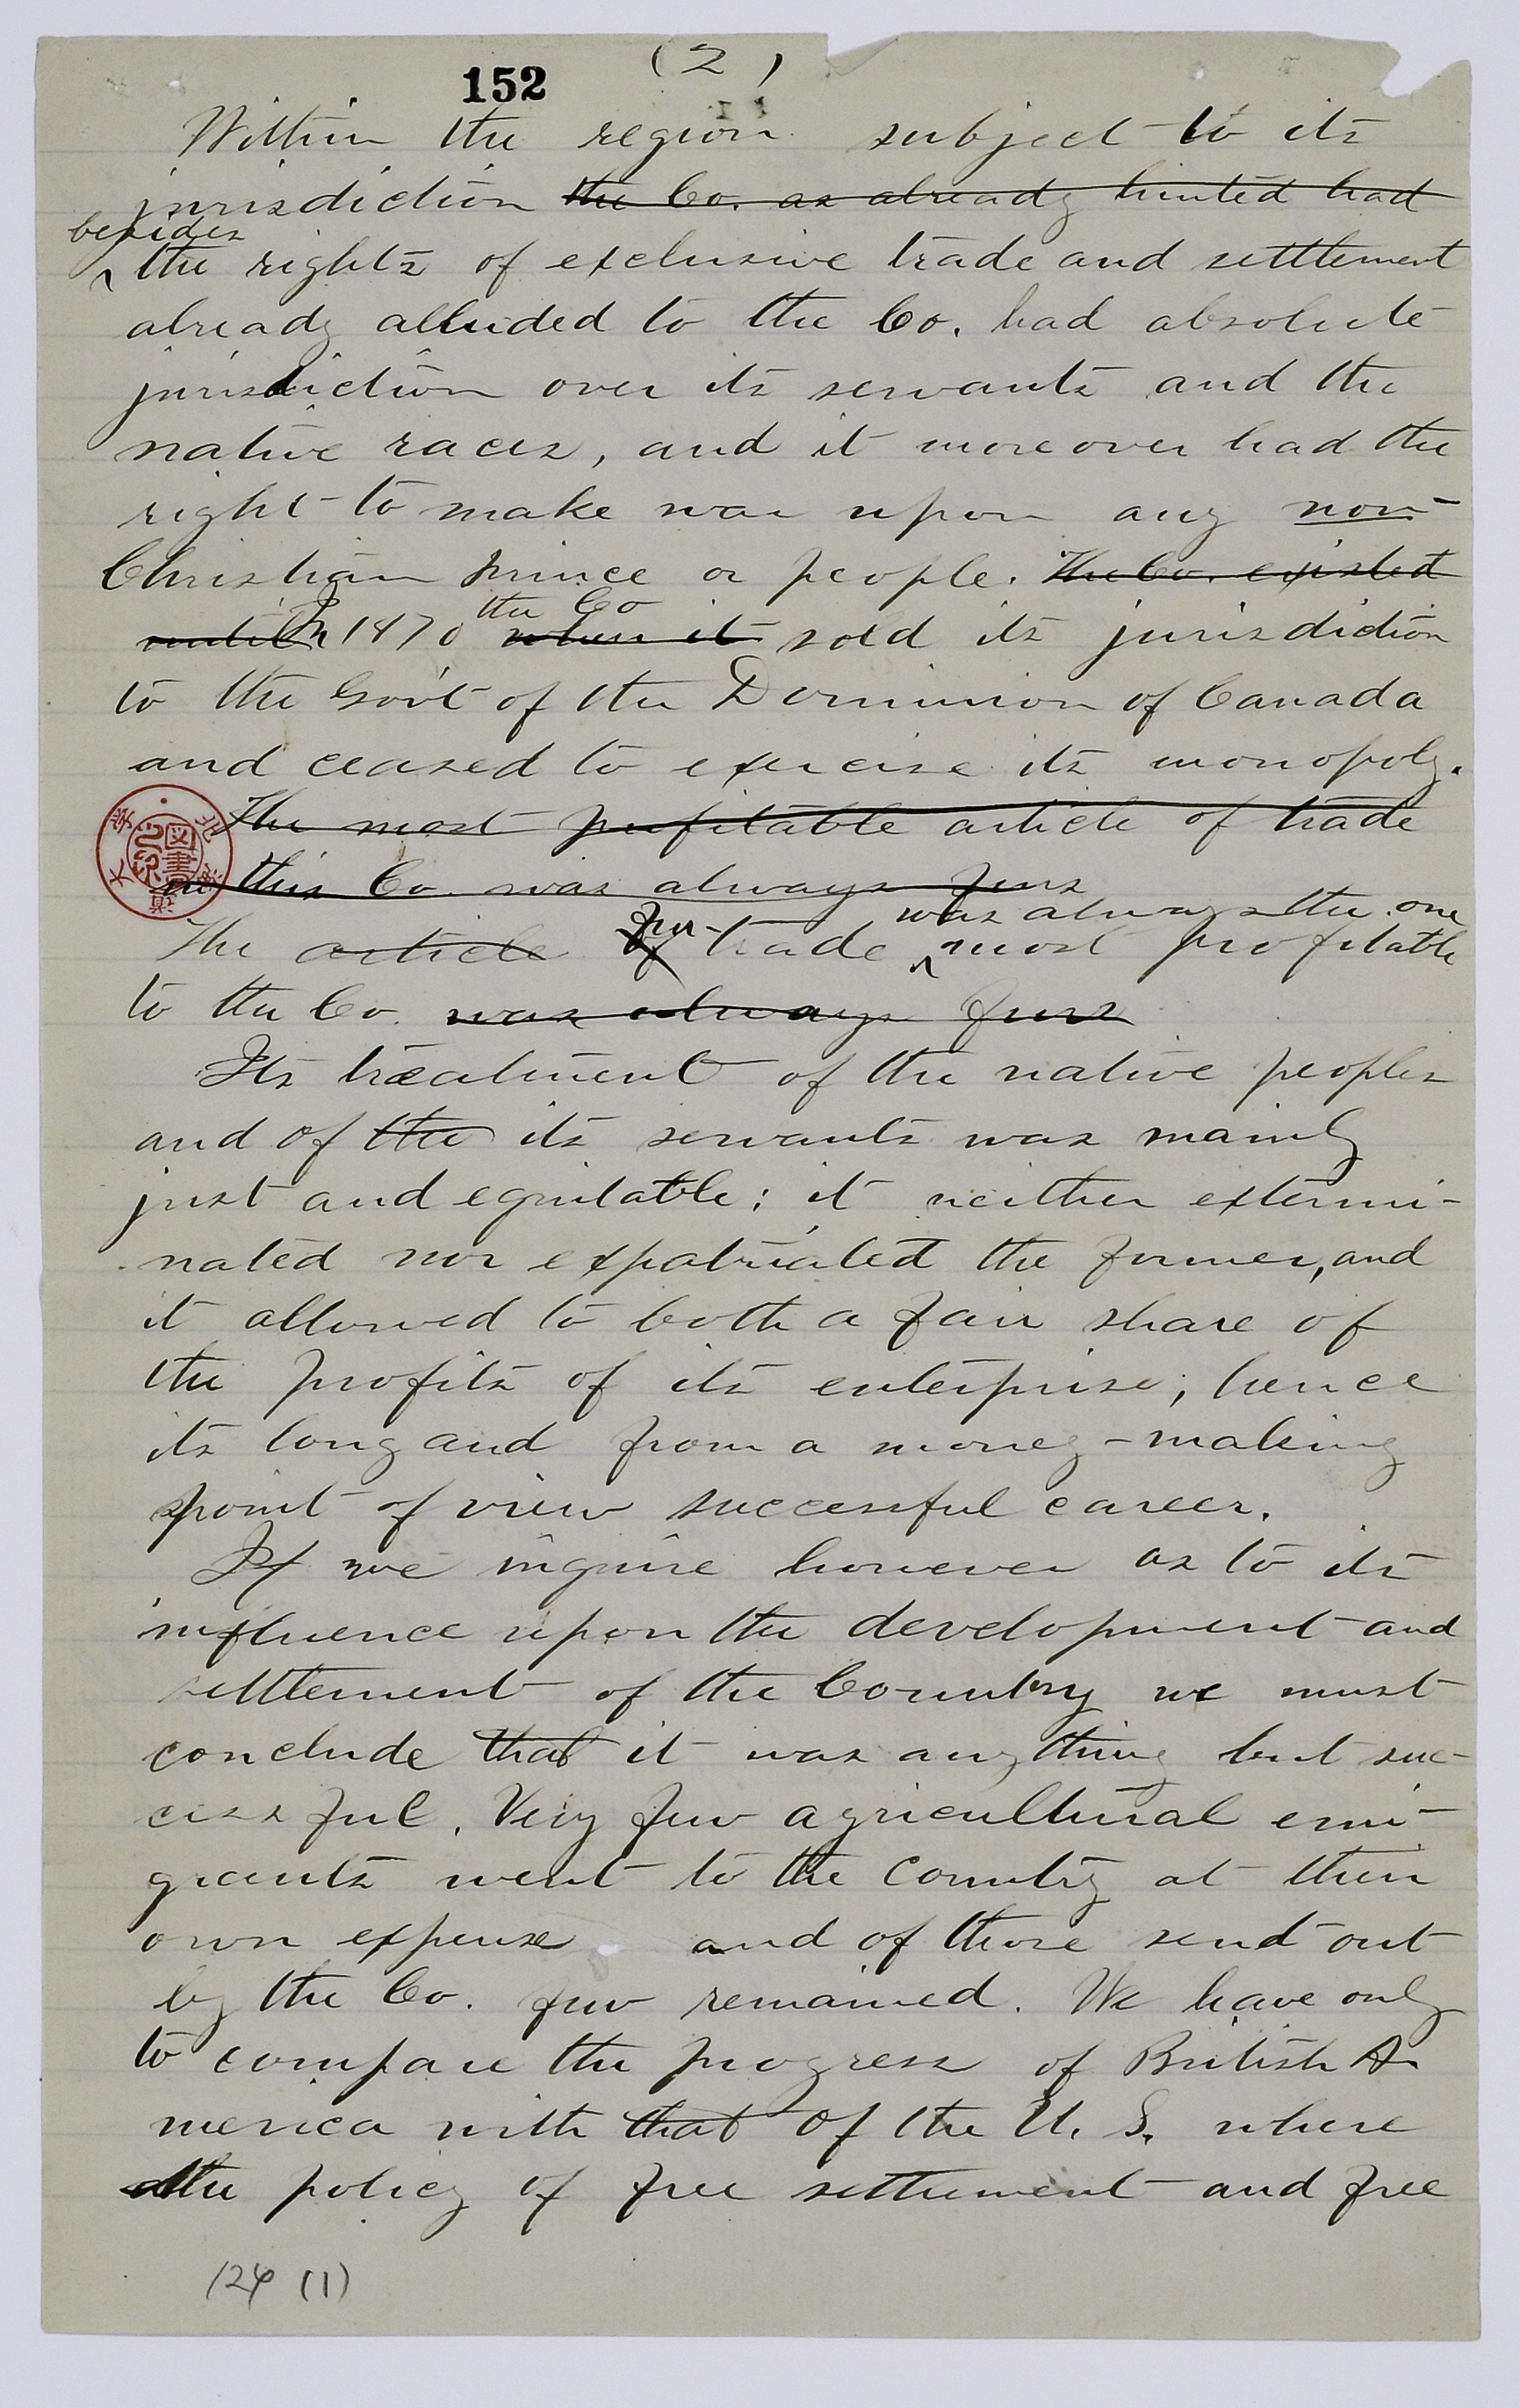 152 (2)
Within the region subject to its
jurisdiction the Co. as already hinted had
besides
the rights of exclusive trade and settlement
already alluded to the Co. had absolute
jurisdiction over its servants and the
native races, and it moreover had the
right to make war upon any non-
Christian prince or people. The Co. existed
the Co
until In 1870 when it sold its jurisdiction
to the Gov't of the Dominion of Canada
and ceased to exercise its monopoly.
The most profitable article of trade
to this Co. was always furs
fur- was always the one
The article of trade most profitable
to the Co. was always furs
Its treatment of the native peoples
and of the its servants was mainly
just and equitable; it neither extermi-
nated nor expatriated the former, and
it allowed to both a fair share of
the profits of its enterprise; hence
its long and from a money-making
point of view successful career.
If we inquire however as to its
influence upon the development and
settlement of the Country we must
conclude that it was anything but suc-
cessful. Very few agricultural emi-
grants went to the Country at their
own expense and of those send out
by the Co. few remained. We have only
to compare the progress of British A-
merica with that of the U. S. where
the policy of free settlement and free
124 (1)